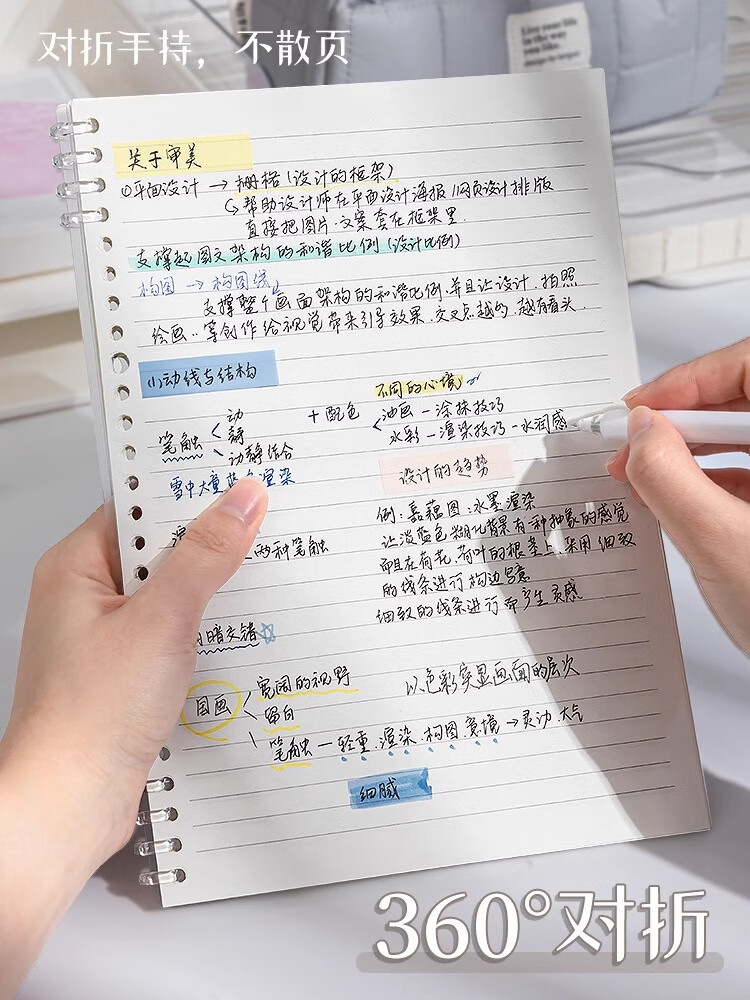 对折手持，不散页
Live your life
in the way
you like.
关于审美
①平面设计 → 栅格（设计的框架）
帮助设计师在平面设计海报、网页设计排版
直接把图片、文案套在框架里
支撑起图文架构的和谐比例（设计比例）
构图 → 构图线
支撑整个画面架构的和谐比例,并且让设计、拍照
绘画..等创作给视觉带来引导效果.交叉点越多,越有看头.
(1)动线与结构
笔触 < 动
静
动静结合
+配色
不同的心境
油画－涂抹技巧
水彩－渲染技巧－水润感
雪中大重蓝 渲染
两种笔触
设计的趋势
例：嘉藕图：水墨渲染
让淡蓝色糊化背景有一种抽象的感觉
而且在荷花、荷叶的根茎上,采用细致
的线条进行构边写意
细致的线条进行而产生灵感
暗交错☆
国画
宽阔的视野
留白
笔触－轻重.渲染.构图.意境→灵动.大气
以色彩突显画面的层次
细腻
360°对折